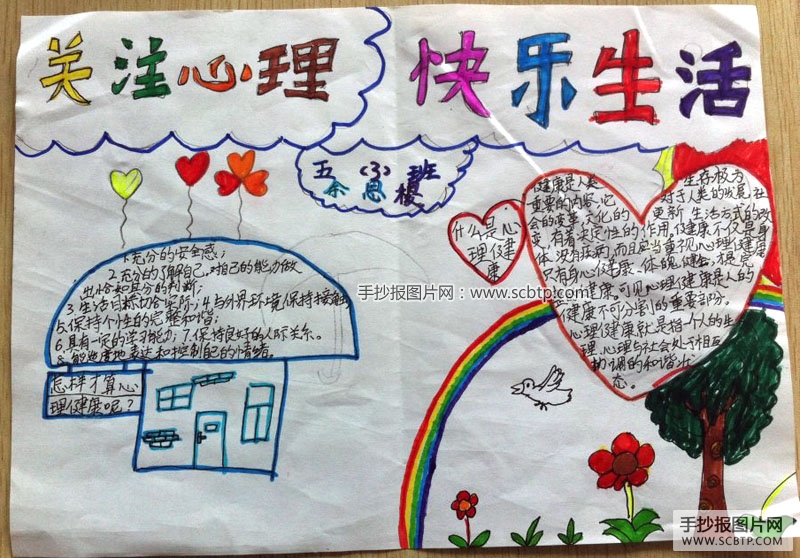 关注心理 快乐生活
五（3）班
余思
1.充分的安全感；
2.充分的了解自己,对自己的能力做
出恰如其分的判断；
3.生活目标切合实际；4.与外界环境保持接触；
5.保持个性的完整和谐；
6.具有一定的学习能力；7.保持良好的人际关系。
8.能适度地表达和控制自己的情绪。
怎样才算心
理健康呢？
什么是心
理健
康
健康是人类
重要的内容,它
会的变革,文化的
变,有着决定性的
体没
只有身心健康、体魄健全,才是完
健康。可见心理健康是人的
健康不可分割的重要部分。
心理健康就是指一个人的生
理、心理与社会处于相互
协调的和谐状
态。
生存极为
对于人类的发展,社
更新,生活方式的改
作用,健康不仅是身
而且应当重视心理健康
手抄报图片网：www.scbtp.com
手抄报图片网
WWW.SCBTP.COM